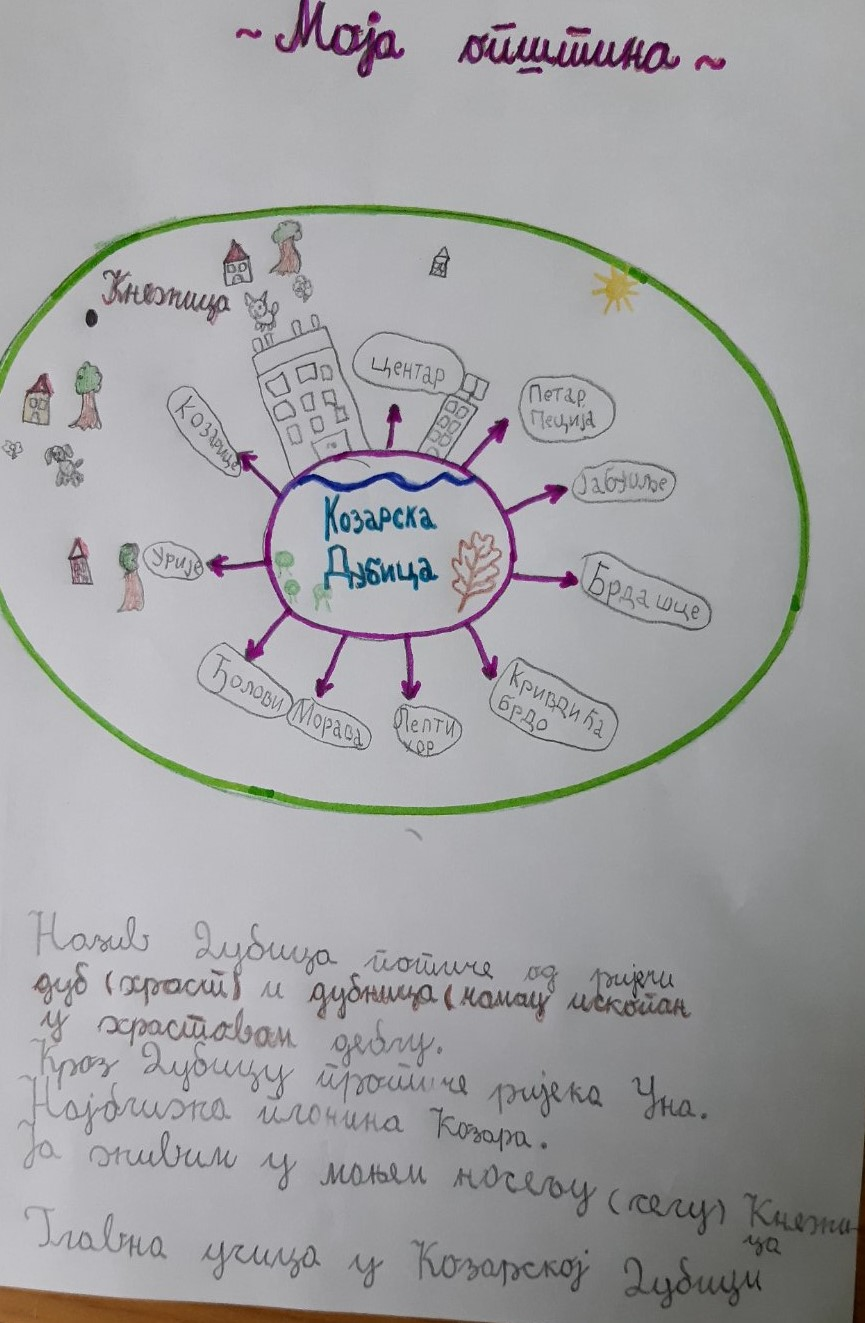 ~ Моја општина ~
Кнежица
Центар
Козарице
Петар
Пеција
Јабучиље
Урије
Козарска
Дубица
Брдашце
Ђолови
Морава
Лепти
хор
Кривдића
брдо
Назив Дубица потиче од ријечи
дуб (храст) и дубница (чамац ископан
у храстовом деблу.
Кроз Дубицу протиче ријека Уна.
Најближа планина Козара.
Ја живим у мањем насељу (селу) Кнежи
ца
Главна улица у Козарској Дубици